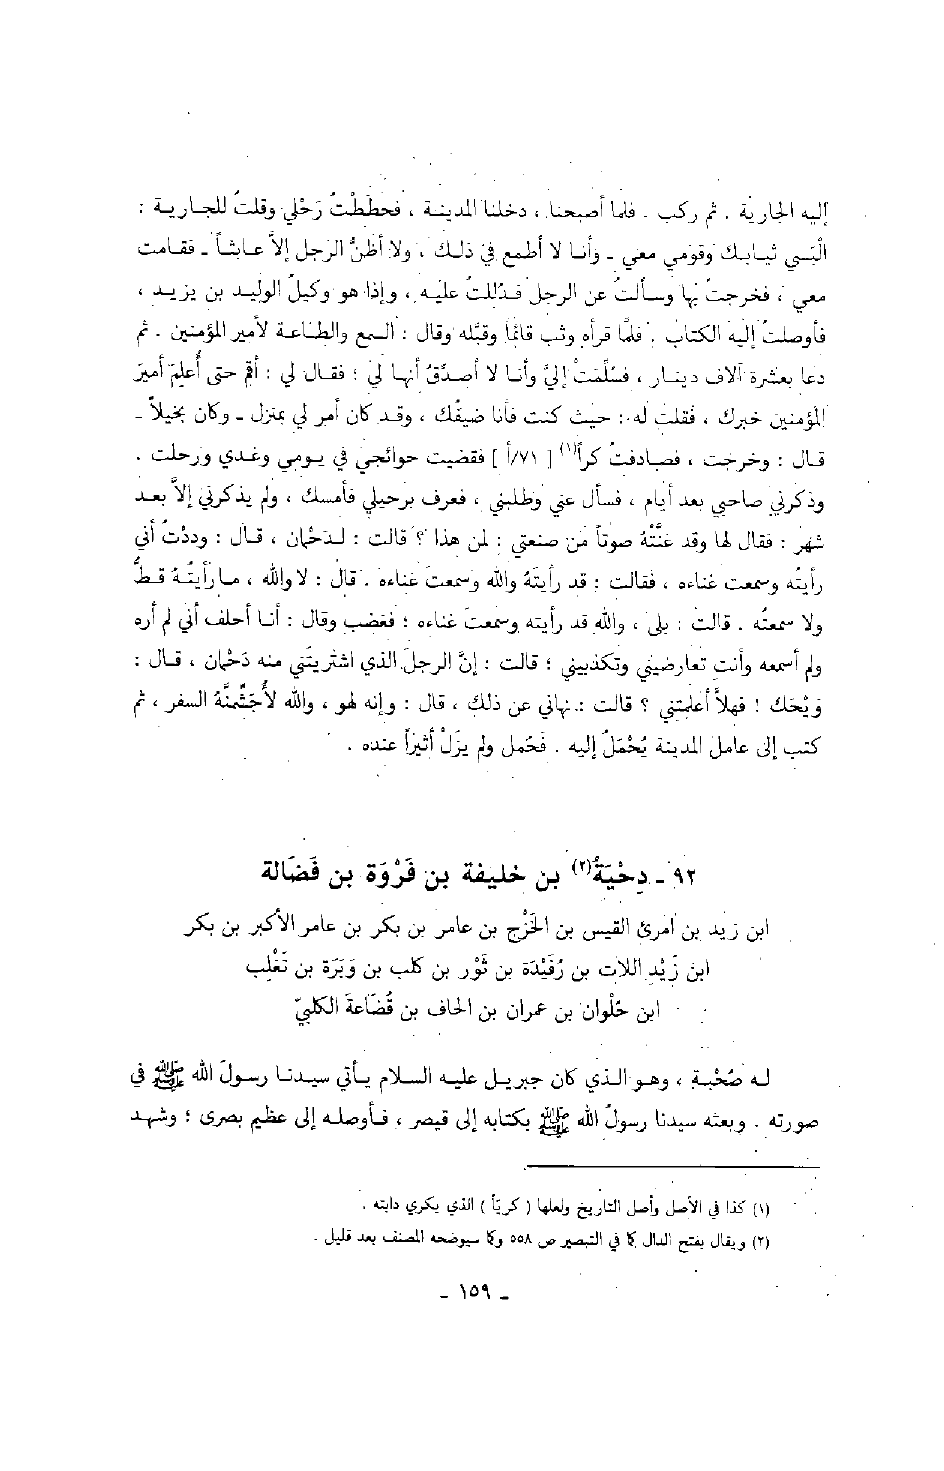 إليه الجارية . ثم ركب . فلما أصبحنا ، دخلنا المدينة ، فحطَطْتُ رَحْلي وقلتُ للجارية :
الْبَسي ثيابك وقومي معي ـ وأنا لا أطمع في ذلك ، ولا أظنُّ الرجل إلاَّ عابثاً ـ فقامت
معي ، فخرجتُ بها وسألتُ عن الرجل فدُللتُ عليه ، وإذا هو وكيلُ الوليد بن يزيد ،
فأوصلتُ إليه الكتاب . فلمَّا قرأه وثب قائماً وقبَّله وقال : السمع والطاعة لأمير المؤمنين . ثم
دعا بعشرة آلاف دينار ، فسُلِّمَتْ إليَّ وأنا لا أصدِّقُ أنها لي ؛ فقال لي : أقم حتى أُعلِمَ أميرَ
المؤمنين خبرك ، فقلت له : حيث كنت فأنا ضيفُك ، وقد كان أمر لي بمنزل ـ وكان بخيلاً ـ
قال : وخرجت ، فصادفتُ كراً(١) [ ٧١/أ ] فقضيت حوائجي في يومي وغدي ورحلت .
وذكرني صاحبي بعد أيام ، فسأل عني وطلبني ، فعرف برحيلي فأمسك ، ولم يذكرني إلاَّ بعد
شهر : فقال لها وقد غنَّتْهُ صوتاً من صنعتي : لمن هذا ؟ قالت : لدَحْمان ، قال : وددْتُ أني
رأيتُه وسمعت غناءه ، فقالت : قد رأيتَهُ والله وسمعتَ غناءه . قال : لا والله ، ما رأيتُهُ قطُّ
ولا سمعتُه . قالت : بلى ، والله قد رأيته وسمعتَ غناءه ؛ فغضب وقال : أنا أحلف أني لم أره
ولم أسمعه وأنتِ تعارضيني وتكذبيني ؛ قالت : إنَّ الرجلَ الذي اشتريتَني منه دَحْمان ، قال :
وَيْحَك ! فهلاَّ أعلمتِني ؟ قالت : نهاني عن ذلك ، قال : وإنه لهو ، والله لأُجَشِّمَنَّهُ السفر ، ثم
كتب إلى عامل المدينة يُحْمَلُ إليه . فحُمل ولم يزَلْ أثيراً عنده .
٩٢ ـ دِحْيَةُ(٢) بن خليفة بن فَرْوَة بن فَضَالة
ابن زيد بن امرئ القيس بن الخَزْج بن عامر بن بكر بن عامر الأكبر بن بكر
ابن زَيْد اللات بن رُفَيْدَة بن ثَوْر بن كلب بن وَبَرة بن تَغْلِب
ابن حُلْوان بن عمران بن الحاف بن قُضَاعة الكلبيّ
له صُحْبة ، وهو الذي كان جبريل عليه السلام يأتي سيدنا رسولَ الله ﷺ في
صورته . وبعثه سيدنا رسولُ الله ﷺ بكتابه إلى قيصر ، فأوصله إلى عظيم بصرى ؛ وشهد
(١) كذا في الأصل وأصل التاريخ ولعلها ( كريّاً ) الذي يكري دابته .
(٢) ويقال بفتح الدال كما في التبصير ص ٥٥٨ وكما سيوضحه المصنف بعد قليل .
ـ ١٥٩ ـ